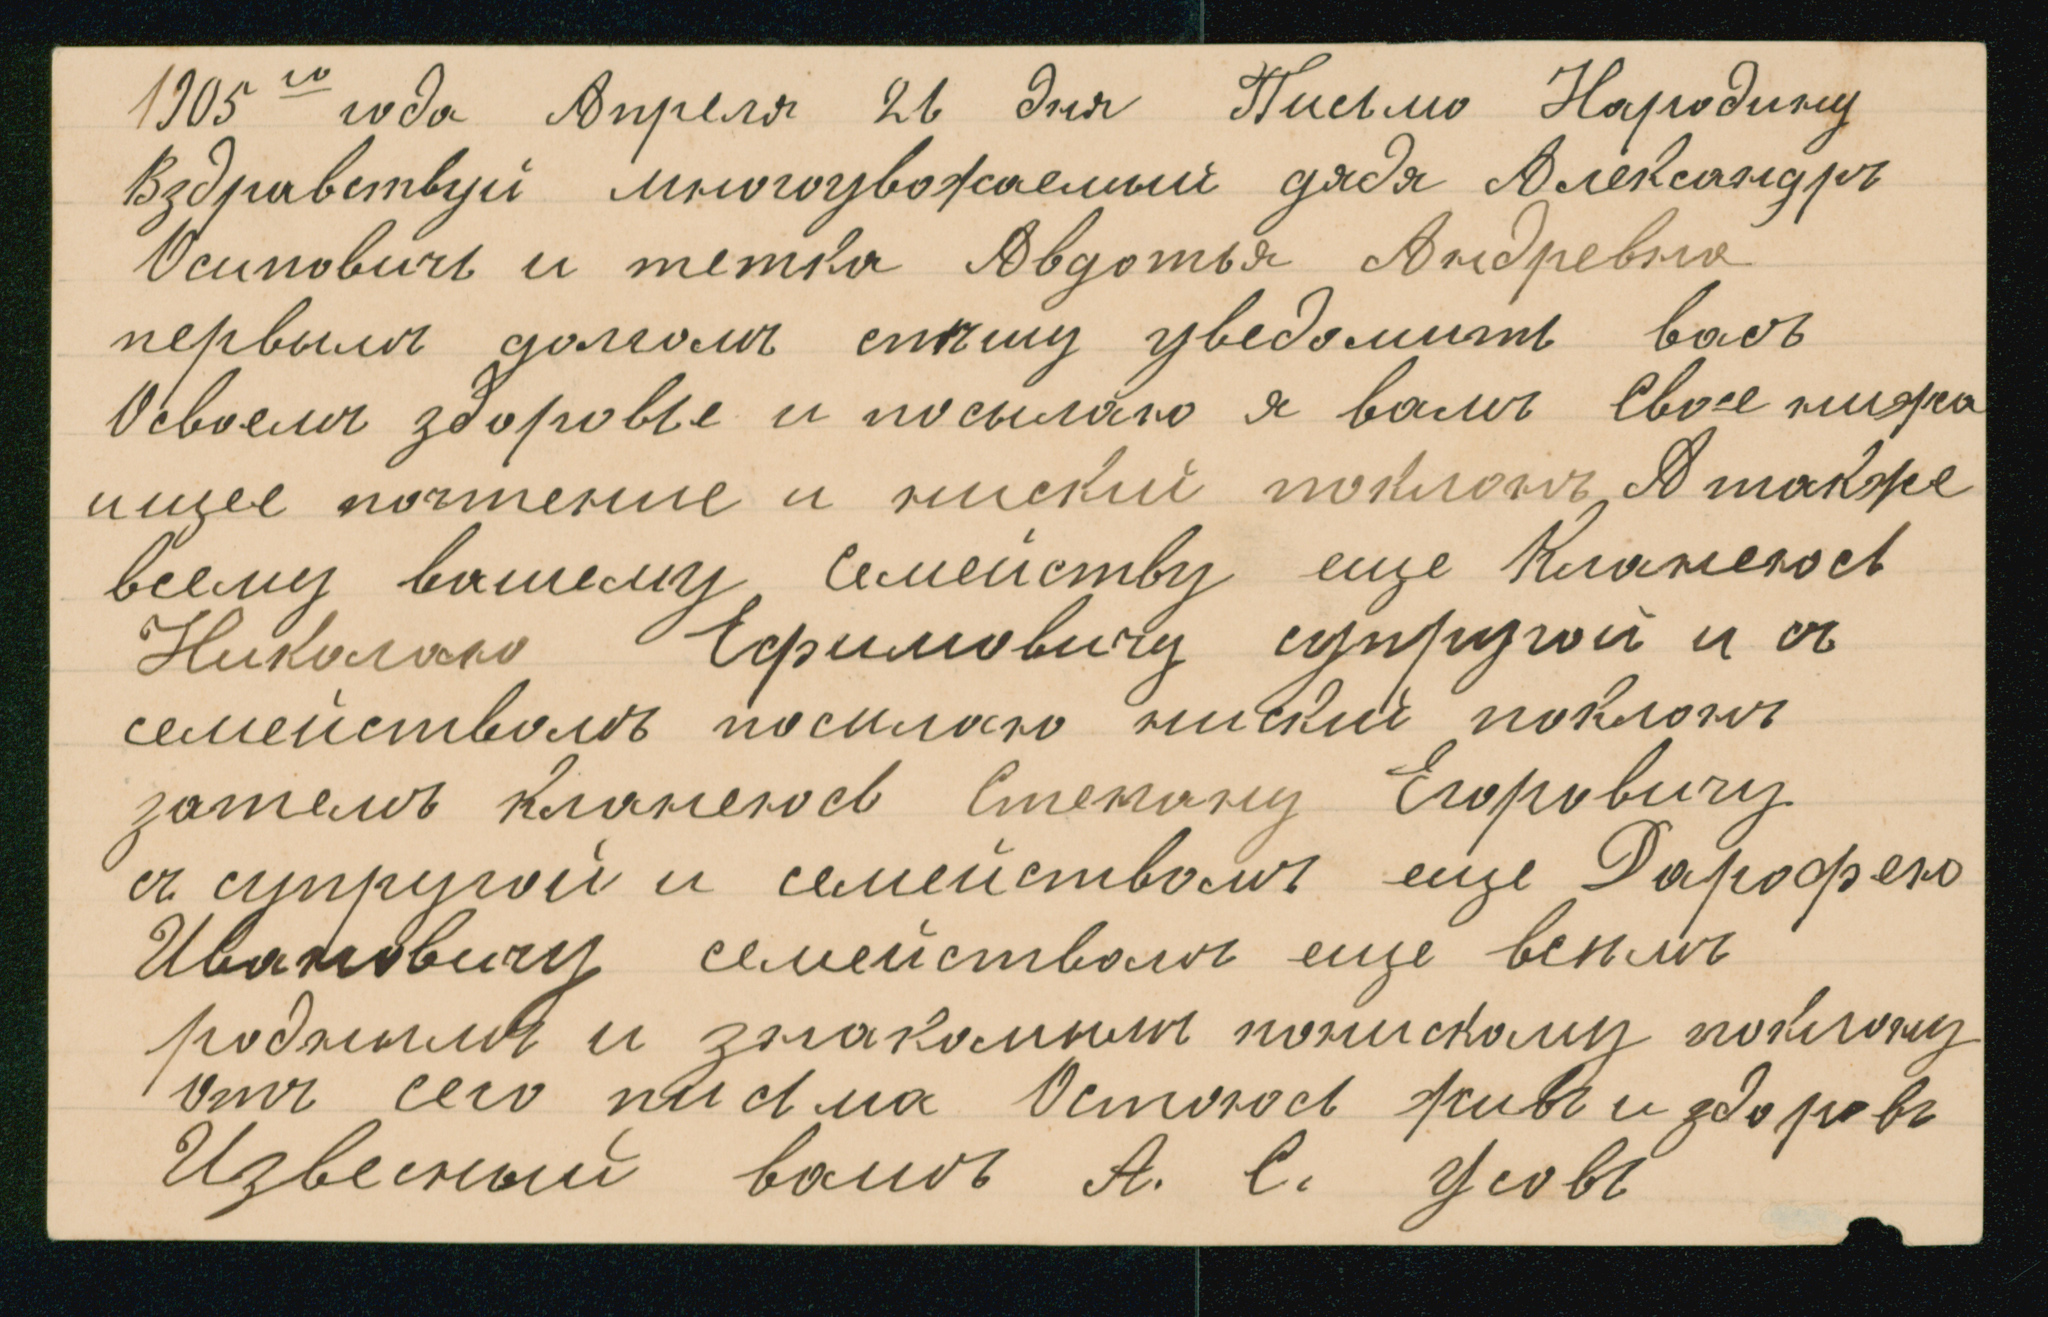 1905го года Апреля 21 дня Письмо Народину
Вздравствуй многоувожаемый дядя Александръ
Осиповичь и тетка Авдотья Андревна
первымъ долгомъ спѣшу уведомить васъ
Освоемъ здоровье и посылаю я вамъ Свое нижа
ищее почтение и ниский поклонъ А также
всему вашему Семейству еще Кланеюсь
Николаю Ефимовичу супругой и съ
семействомъ посылаю ниский поклонъ
затемъ кланеюсь Степану Егоровичу
съ супругой и семействомъ еще Дарофею
Ивановичу семействомъ еще всѣмъ
роднымъ и знакомымъ понискому поклону
Отъ сего письма Остоюсь живъ и здоровъ
Извесный вамъ А. С. Усовъ